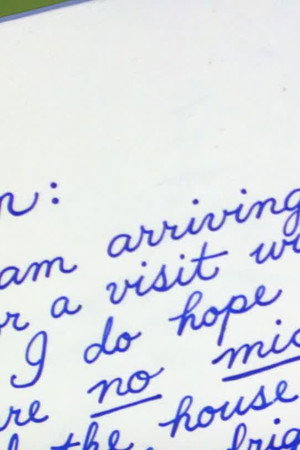 n:
am arriving
r a visit w
I do hope
re no mic
the house
frig